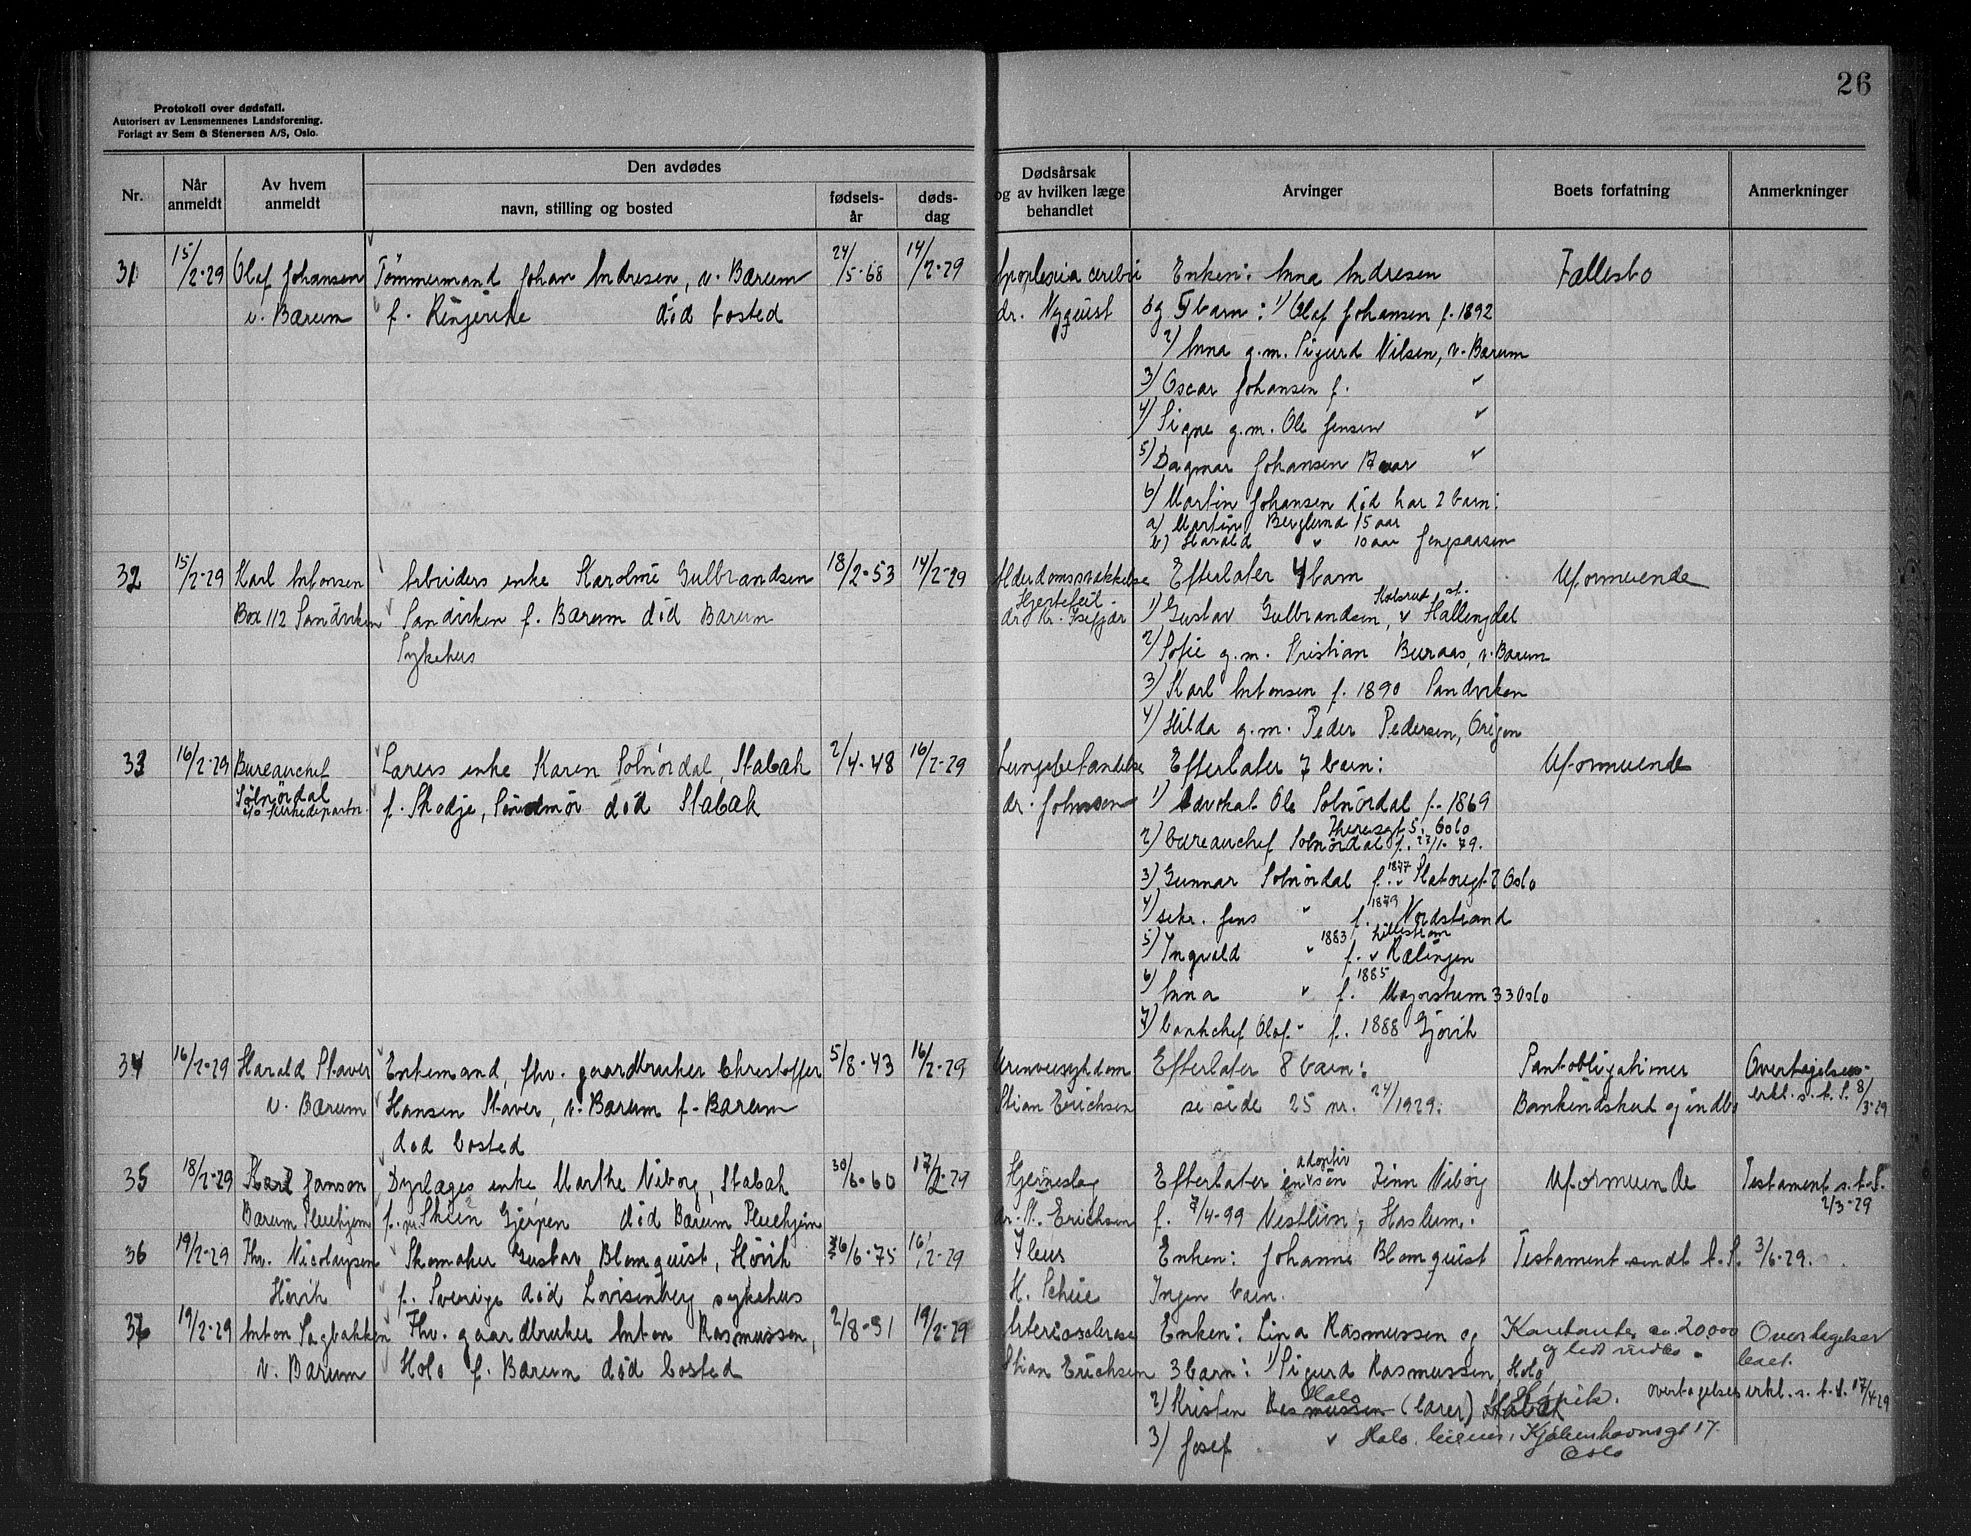 26
Protokoll over dødsfall.
Autorisert av Lensmennenes Landsforening.
Forlagt av Sem & Stenersen A/S, Oslo.
Nr.
Når anmeldt
Av hvem anmeldt
Den avdødes
navn, stilling og bosted
fødsels-år
døds-dag
Dødsårsak og av hvilken læge behandlet
Arvinger
Boets forfatning
Anmerkninger
31 15/2-29 Olaf Johansen Tömmermand Johan Andresen, v. Bærum 24/5-68 14/2-29 Apoplexia cerebri Enken: Anna Andresen Fællesbo
v. Bærum f. Ringerike död bosted dr. Nyquist og barn: 1) Olaf Johansen f. 1892
2) Anna g.m. Sigurd Nilsen, v. Bærum
3) Oscar Johansen f. "
4) Signe g.m. Ole Jensen "
5) Dagmar Johansen 17 aar "
6) Martin Johansen död har 2 barn:
a) Martin Berglund 15 aar
b) Harald " 10 aar Jongsaasen
32 15/2-29 Karl Antonsen Arbeiders enke Karoline Gulbrandsen 18/2-53 14/2-29 Alderdomssvakkelse Efterlater 4 barn Uformuende
Hjertefeil
Box 112 Sandviken Sandviken f. Bærum död Bærum dr. Kr. 1) Gustav Gulbrandsen, v Hallingdal
Sykehus 2) Sofie g.m. Kristian Buraas, v. Bærum
3) Karl Antonsen f. 1890 Sandviken
4) Hilda g.m. Peder Pedersen, Origon
33 16/2-29 Bureauchef Lærers enke Karen Solnördal, Stabæk 2/4-48 16/2-29 Lungebetændelse Efterlater 7 barn: Uformuende
Solnördal
c/o Kirkedepartm. f. Skodje, Söndmör död Stabæk dr. Johnsen 1) Advokat Ole Solnördal f. 1869
Theresgt 5. Oslo
2) bureauchef Solnördal f. 22/1-79.
3) Gunnar Solnördal f. 1877 Oslo
4) sekr. Jens " f. 1879 Nordstrand
5) Ingvald " 1883 f. v Rælingen Lilleström
6) Anna " f. 1885 Majorstuen 33 Oslo
7) bankchef Olaf " f. 1888 Gjövik
34 16/2-29 Harald Staver Enkemand, fhv. gaardbruker Christoffer 5/8-43 16/2-29 Urinveissygdom Efterlater 8 barn: Pantobligationer Overtagelses-
v. Bærum Hansen Staver, v. Bærum f. Bærum Stian Erichsen se side 25 nr. 24/1929. Bankindskud og indbo erkl. s. t. S. 8/3-29
död bosted
35 18/2-29 Karl Janson Dyrlæges enke Marthe Viborg, Stabæk 30/6-60 17/2-29 Hjerneslag Efterlater en adoptiv sön Finn Viborg Uformuende Testament s. t. S.
Bærum Pleiehjem f. nr. Skien Gjerpen död Bærum Pleiehjem dr. St. Erichsen f. 7/4-99 Vestlien, Haslum. 2/3-29
36 19/2-29 Thv. Nicolaysen Skomaker Gustav Blomquist, Hövik 6/6-75 16/2-29 Ileus Enken: Johanne Blomquist Testament sendt t. S. 3/6-29.
Hövik f. Sverige död Lovisenberg sykehus H. Scheie Ingen barn.
37 19/2-29 Anton Sagbakken Fhv. gaardbruker Anton Rasmussen, 2/8-51 19/2-29 Arteriosclerose Enken: Lina Rasmussen og Kontanter ca. 20.000 Overtagelser
v. Bærum Holo f. Bærum död bosted Stian Erichsen 3 barn: 1) Sigurd Rasmussen, Holo og litt indbo.
2) Kristen Rasmussen Holo (lærer) Stabæk Hövik. overtagelseserkl. s. t. S. 17/4-29
3) Josef " Holo, Kjøbenhavnsgt 17.
Oslo